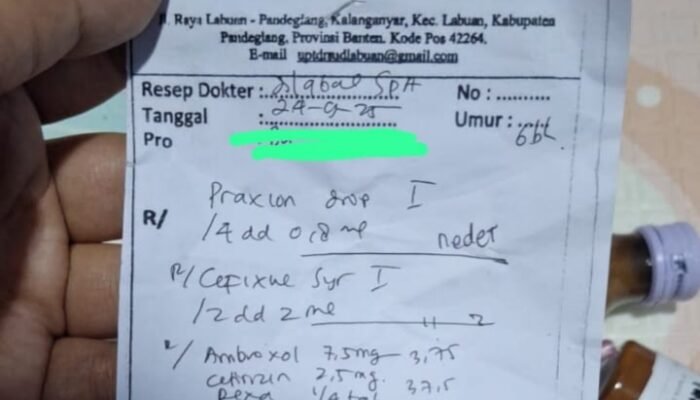 Jl. Raya Labuan - Pandeglang, Kalanganyar, Kec. Labuan, Kabupaten
Pandeglang, Provinsi Banten. Kode Pos 42264.
E-mail uptdrsudlabuan@gmail.com
Resep Dokter : SpA No : ..........
Tanggal : 24-9-25 Umur : 6bl.
Pro
R/ Praxion drop I
/4 dd 0,8 ml nedet
R/ Cefixime Syr I
/2 dd 2 ml
R/ Ambroxol 7,5mg 3,75
Cetirizin 2,5mg. 37,5
Dexa 1/4 tab